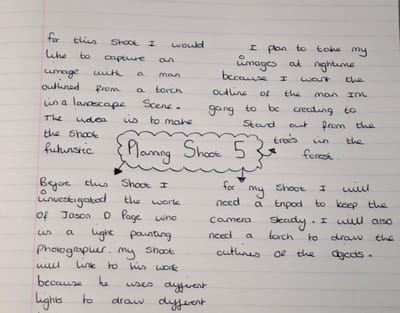 for this shoot I would
like to capture an
image with a man
outlined from a torch
in a landscape scene.
The idea is to make
the shoot
futuristic
I plan to take my
images at nightime
because I want the
outline of the man Im
going to be creating to
stand out from the
trees in the
forest.
Planning Shoot 5
Before this shoot I
investigated the work
of Jason D Page who
is a light painting
photographer. my shoot
will link to his work
because he uses different
lights to draw different
for my shoot I will
need a tripod to keep the
camera steady. I will also
need a torch to draw the
outlines of the objects.